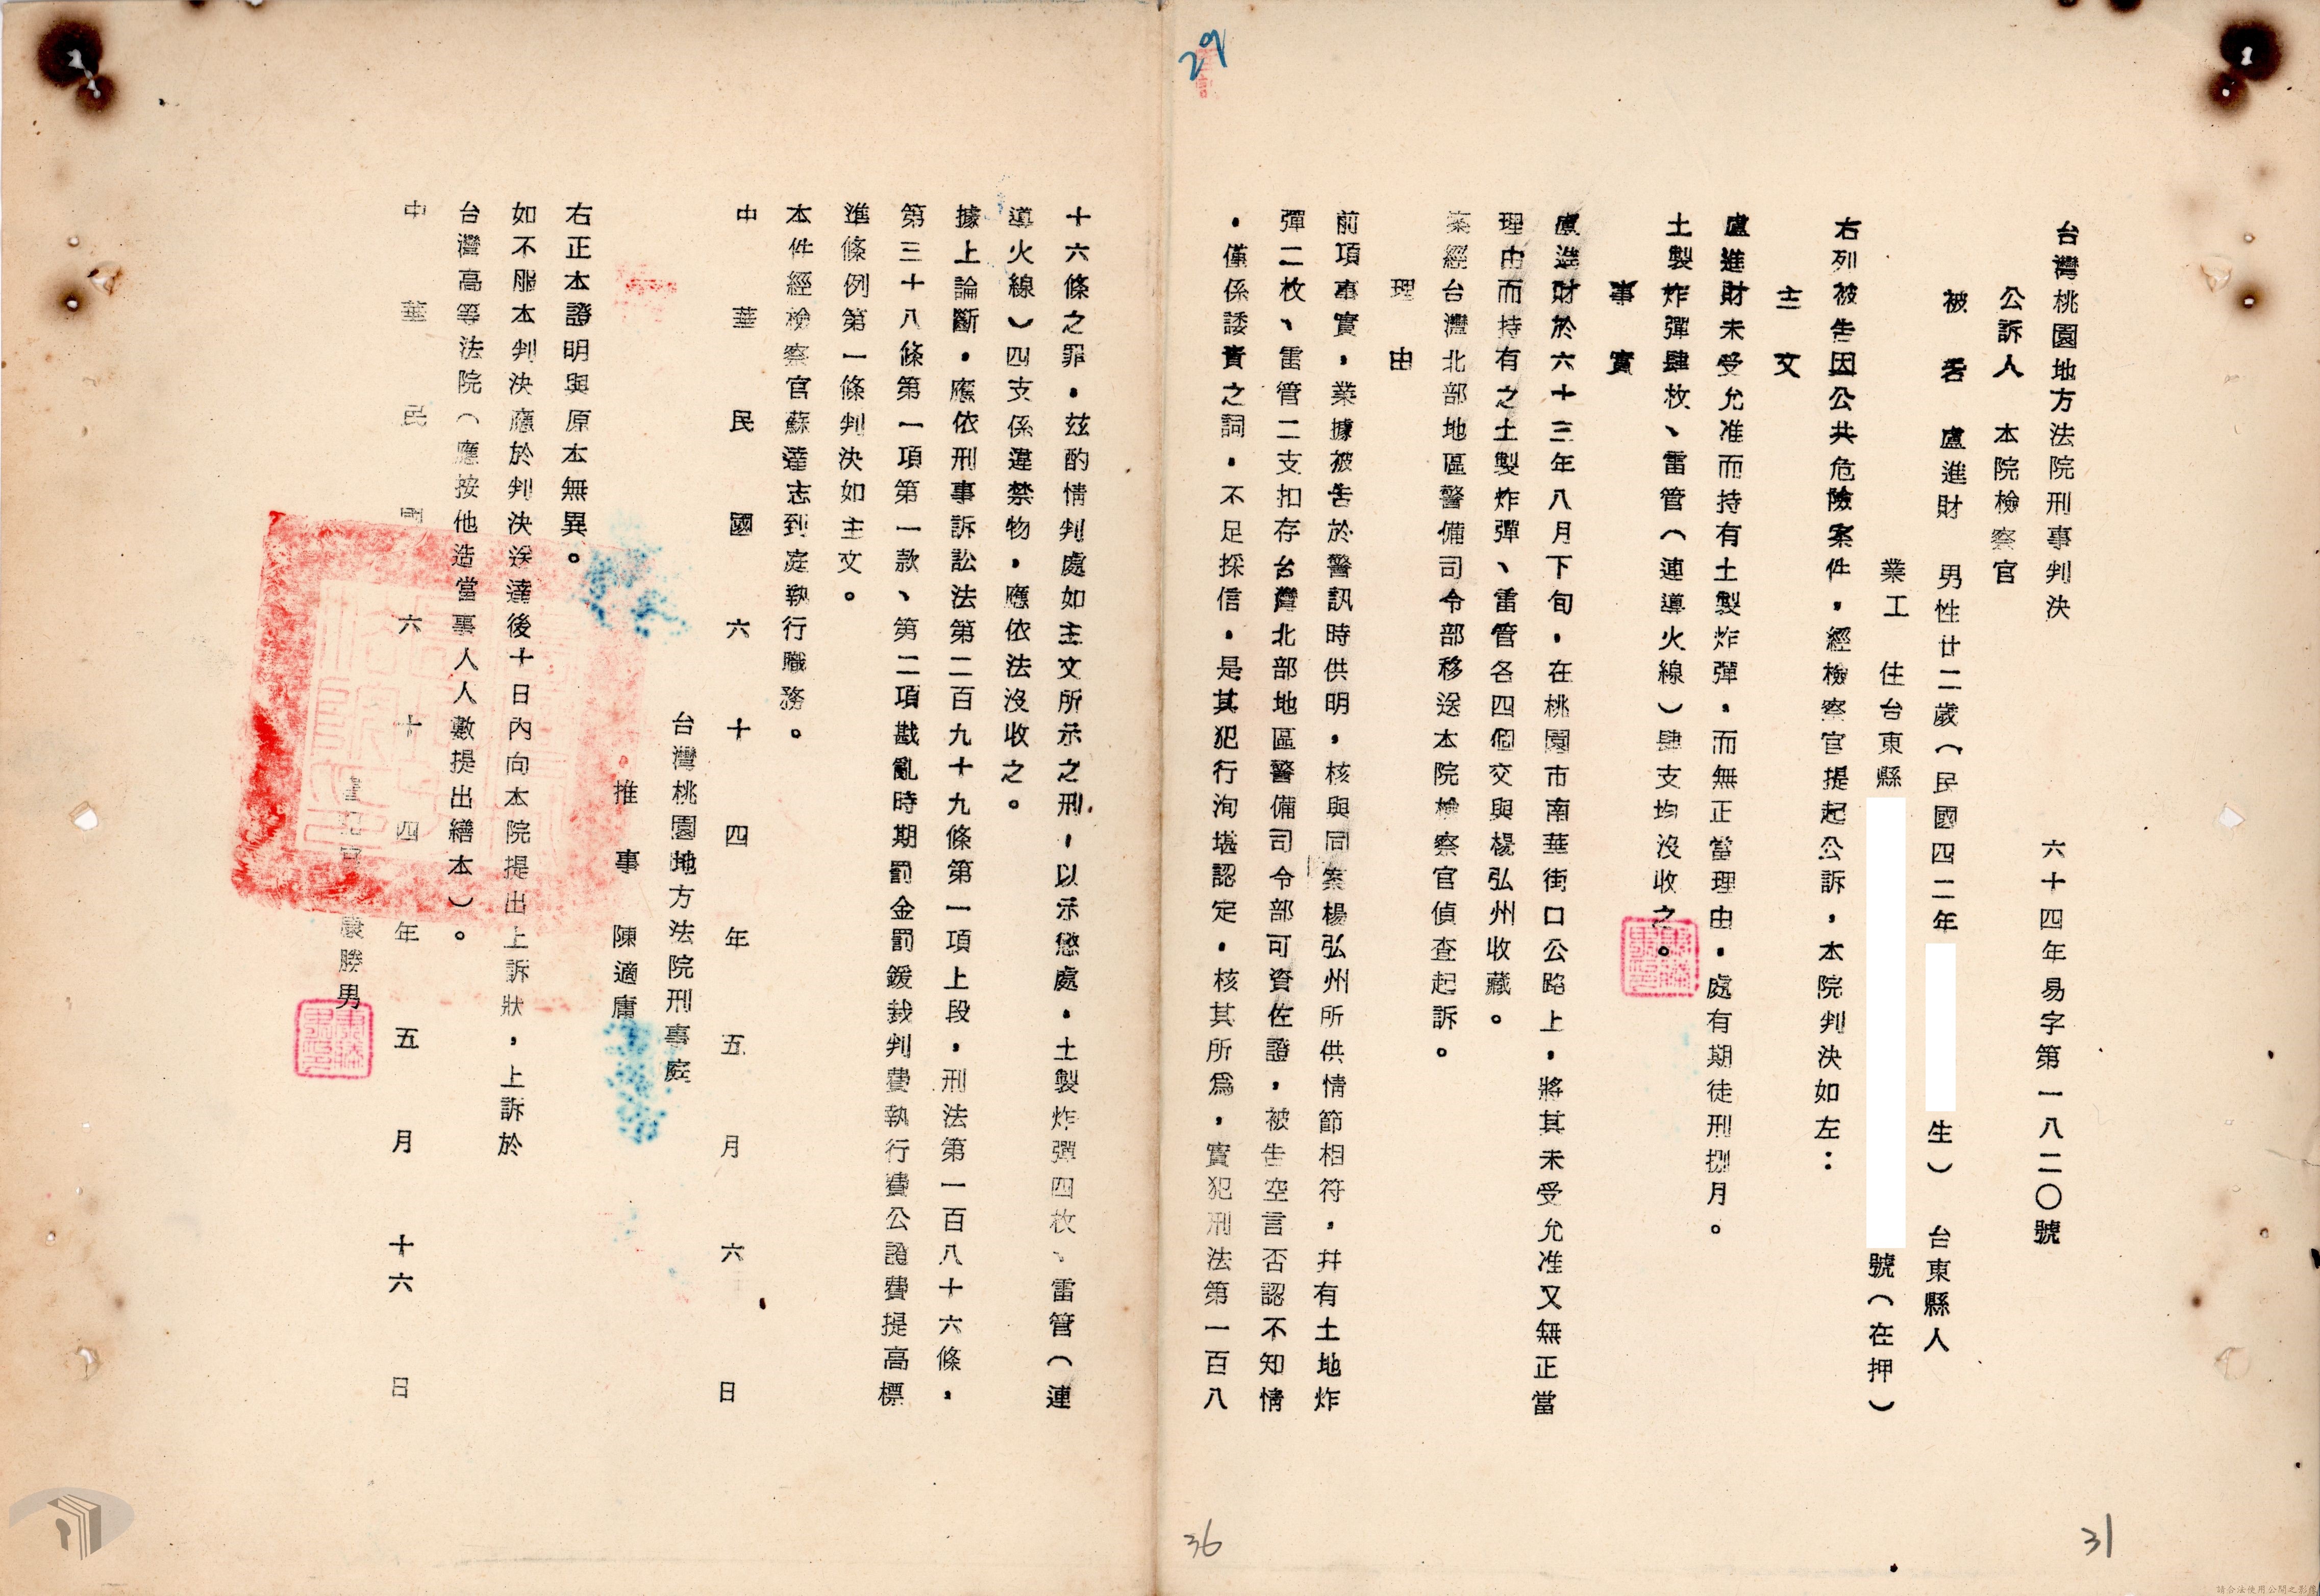 台灣桃園地方法院刑事判決　六十四年易字第一八二〇號
公訴人　本院檢察官
被告　盧進財　男性廿二歲（民國四二年　生）　台東縣人
業工　住台東縣　號（在押）
右列被告因公共危險案件，經檢察官提起公訴，本院判決如左：
主文
盧進財未受允准而持有土製炸彈，而無正當理由，處有期徒刑捌月。
土製炸彈肆枚、雷管（連導火線）肆支均沒收之。
事實
盧進財於六十三年八月下旬，在桃園市南華街口公路上，將其未受允准又無正當
理由而持有之土製炸彈、雷管各四個交與楊弘州收藏。
案經台灣北部地區警備司令部移送本院檢察官偵查起訴。
理由
前項事實，業據被告於警訊時供明，核與同案楊弘州所供情節相符，幷有土地炸
彈二枚、雷管二支扣存台灣北部地區警備司令部可資佐證，被告空言否認不知情
，僅係諉責之詞，不足採信，是其犯行洵堪認定，核其所為，實犯刑法第一百八
十六條之罪，茲酌情判處如主文所示之刑，以示懲處，土製炸彈四枚、雷管（連
導火線）四支係違禁物，應依法沒收之。
據上論斷，應依刑事訴訟法第二百九十九條第一項上段，刑法第一百八十六條，
第三十八條第一項第一款、第二項戡亂時期罰金罰鍰裁判費執行費公證費提高標
準條例第一條判決如主文。
本件經檢察官蘇達志到庭執行職務。
中華民國六十四年五月六日
台灣桃園地方法院刑事庭
推事　陳適庸
右正本證明與原本無異。
如不服本判決應於判決送達後十日內向本院提出上訴狀，上訴於
台灣高等法院（應按他造當事人人數提出繕本）。
中華民國六十四年五月十六日
書記官　勝男
29
36
31
請合法使用公開之影像